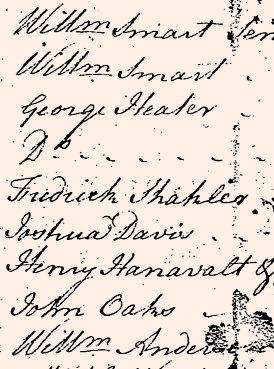 Willm Smart Sen
Willm Smart
George Heater
Do - - - - - -
Fredrick Shakler
Joshua Davis
Henry Hanavalt &
John Oaks
Willm